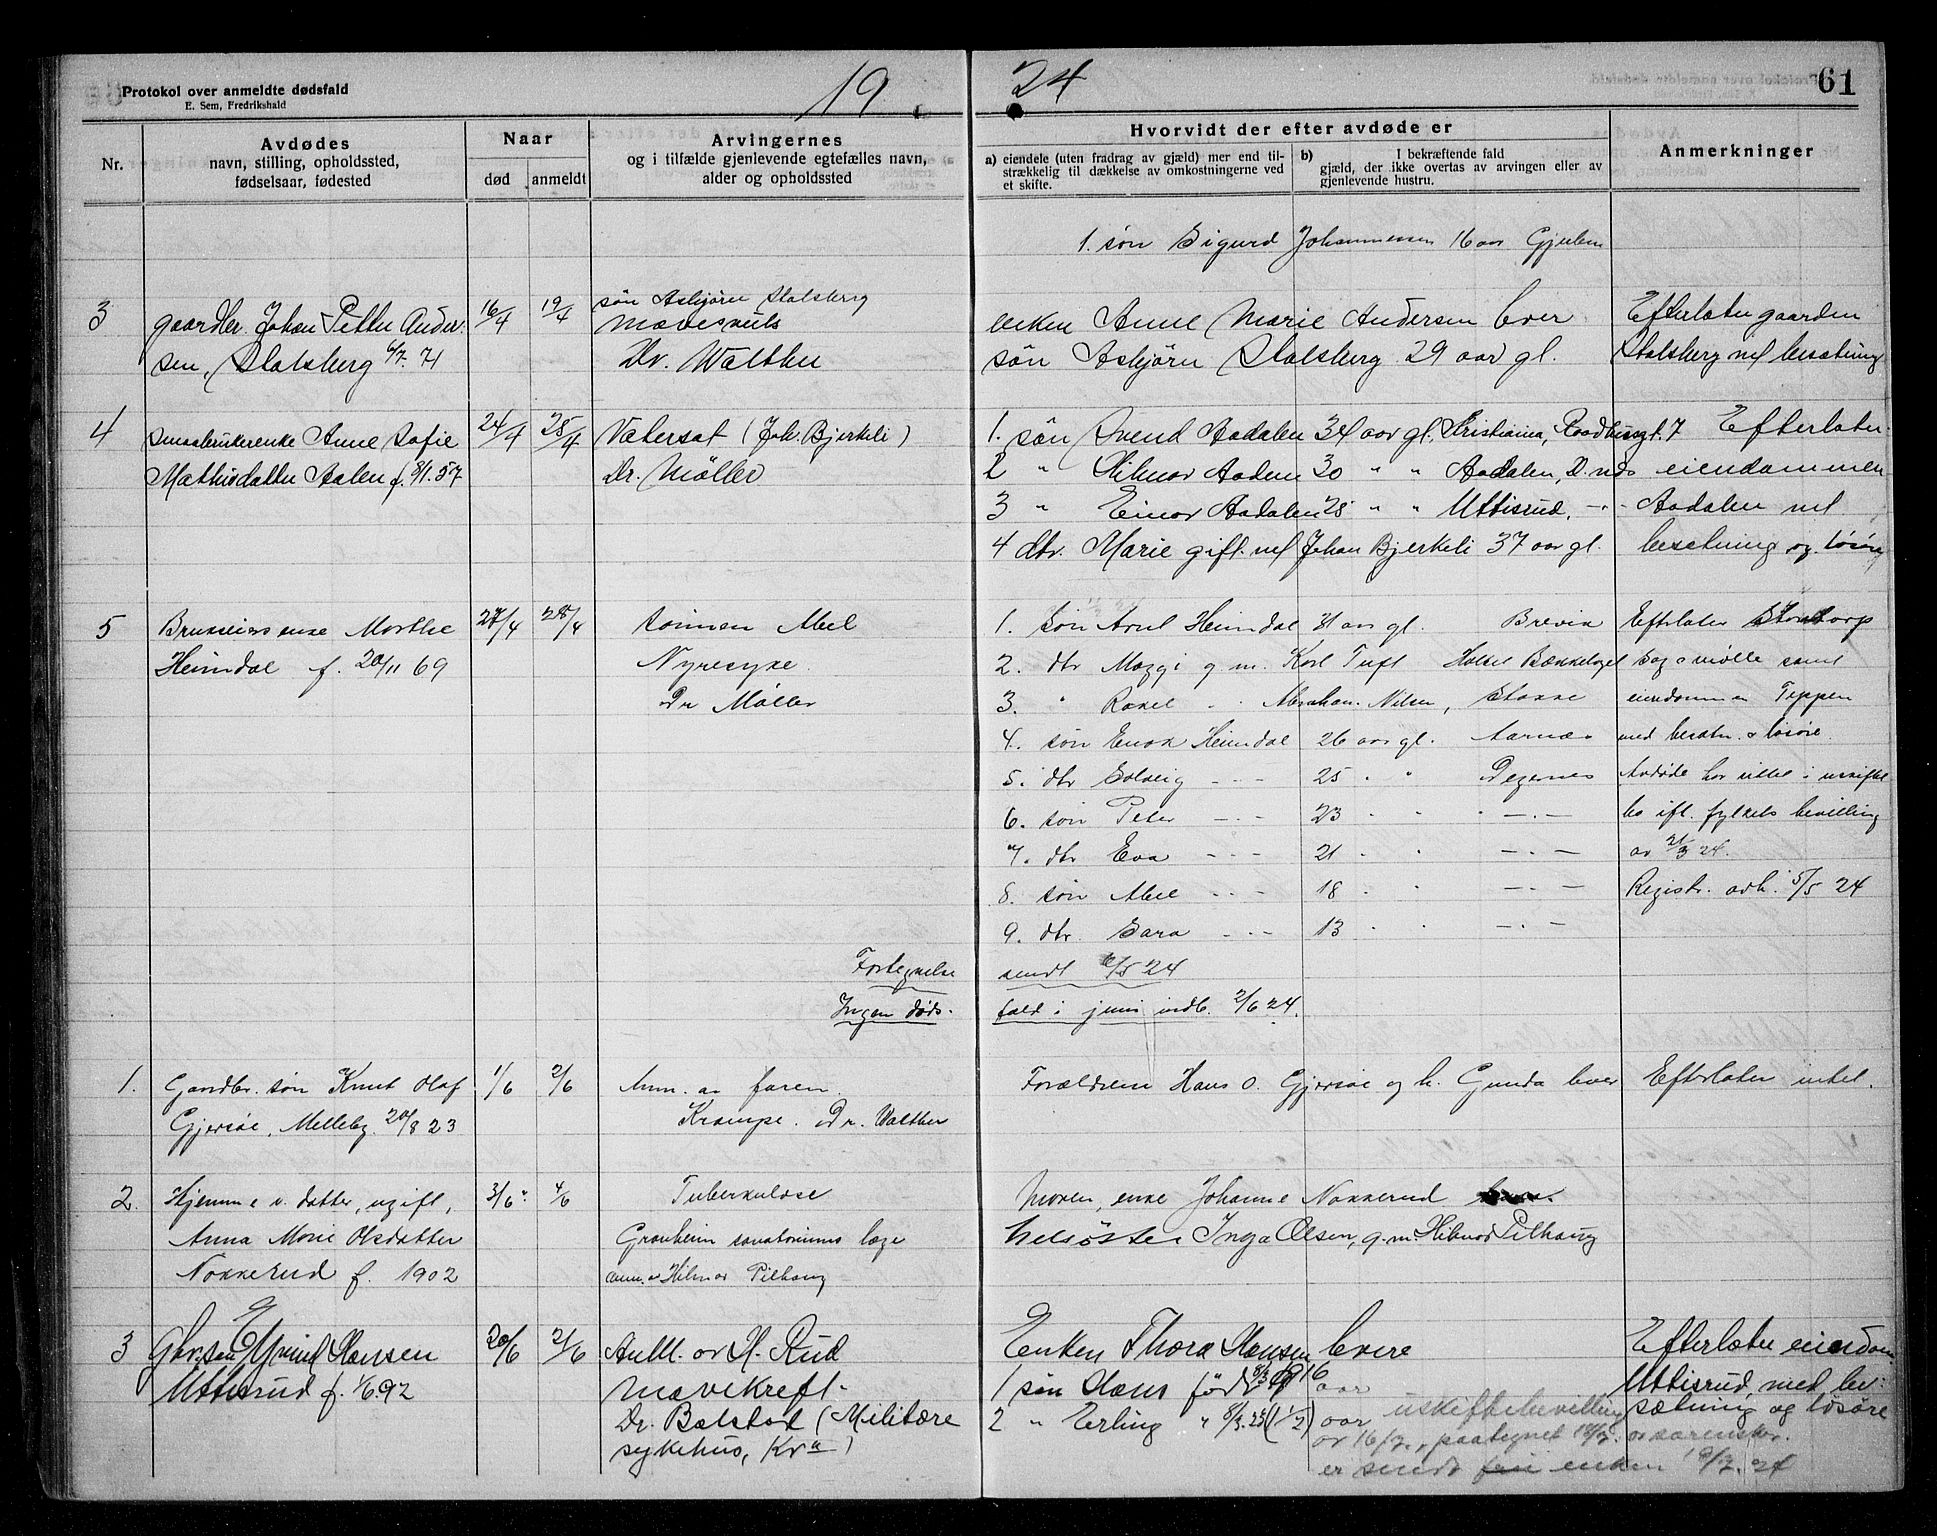 Protokol over anmeldte dødsfald
E. Sem, Fredrikshald
19 24
61
Nr.
Avdødes
navn, stilling, opholdssted,
fødselsaar, fødested
Naar
død anmeldt
Arvingernes
og i tilfælde gjenlevende egtefælles navn,
alder og opholdssted
Hvorvidt der efter avdøde er
a) eiendele (uten fradrag av gjæld) mer end til-
strækkelig til dækkelse av omkostningerne ved
et skifte.
b) I bekræftende fald
gjæld, der ikke overtas av arvingen eller av
gjenlevende hustru.
Anmerkninger
1. søn Sigurd Johannessen 16 aar
3 gaardbr. Johan Petter Ander- 16/4 19/4 søn Asbjørn Stalsberg
sen, Stalsberg 6/7. 71
mavesaals
Dr. Walther
enken Anne Marie Andersen lever
søn Asbjørn Stalsberg 29 aar gl.
Efterlater gaarden
Stalsberg m/ besætning
4 smaabrukerenke Anne Sofie 24/4 25/4 (Joh. Bjerkeli)
Mathisdatter Aalen f. 8/1.57 Dr. Møller
1. søn Svend Aadalen 34 aar gl. Kristiania, Raadhusgt. 7
2 " Hilmar 30 " " Aadalen,
3 " Einar Aadalen 28 " " Uttisrud, - " -
4 dtr. Marie gift m/ Johan Bjerkeli 37 aar gl.
Efterlater
eiendommen
Aadalen m/
besætning og løsøre
5 Brukseiers enke Marthe 27/4 28/4 sønnen Abel
Heimdal f. 20/11 69 Nyresyke
Dr Møller
1. søn Arul Heimdal 31 aar gl. Brevik
2. dtr Magji g. m. Karl Tuft Bækkelaget
3. " Rakel " " Abraham Nilsen, Stokke
4. søn Enok Heimdal 26 aar gl. Aarnes
5. dtr Solveig - " - 25 " " Degernes
6. søn Peter - " - 23 " " - " -
7. dtr Eva - " - 21 " " - " -
8. søn Abel - " - 18 " " - " -
9. dtr. Sara - " - 13 " " - " -
Efterlater Stentorp
sag o mølle samt
eiendommen Teppen
med besætn. o løsøre.
Avdøde har sittet i uskiftet
bo ifl. fylkets bevilling
av 21/3 24.
Registr. avh. 5/5 24
Fortegnelse sendt 2/5 24
Ingen døds- fald i juni indb. 2/6 24.
1. Gaardbr. søn Knut Olaf 1/6 2/6 Anm. av faren
Gjersøe, Melleby. 20/8 23 Krampe. Dr. Walther
Forældrene Hans O. Gjersøe og h. Gunda lever
Efterlater intet.
2. Hjemmev. datter, ugift, 3/6 4/6 Tuberkulose
Anna Marie Olsdatter Granheim sanatoriums læge
Nokkerud f. 1902 anm. av Hilmar Pilhaug
Moren, enke Johanne Nokkerud
helsøster Inga Olsen, g. m. Hilmar Pilhaug
3 Gbr. søn Eyvind Hansen 20/6 21/6 Anm. av H. Rud
Uttisrud f. 1/6 92 Mavekreft
Dr. Balstad (Militære
sykehus, Kr.a)
Enken Thora Hansen lever
1 søn Hans født 8/3 1916 aar
2 " Erling " 8/3.23 (1 1/2) aar
Efterlater eiendom
Uttisrud, med be-
sætning og løsøre
uskiftebevilling
av 16/7, paategnet 18/7. av sorenskr.
er sendt enken 19/7. 24